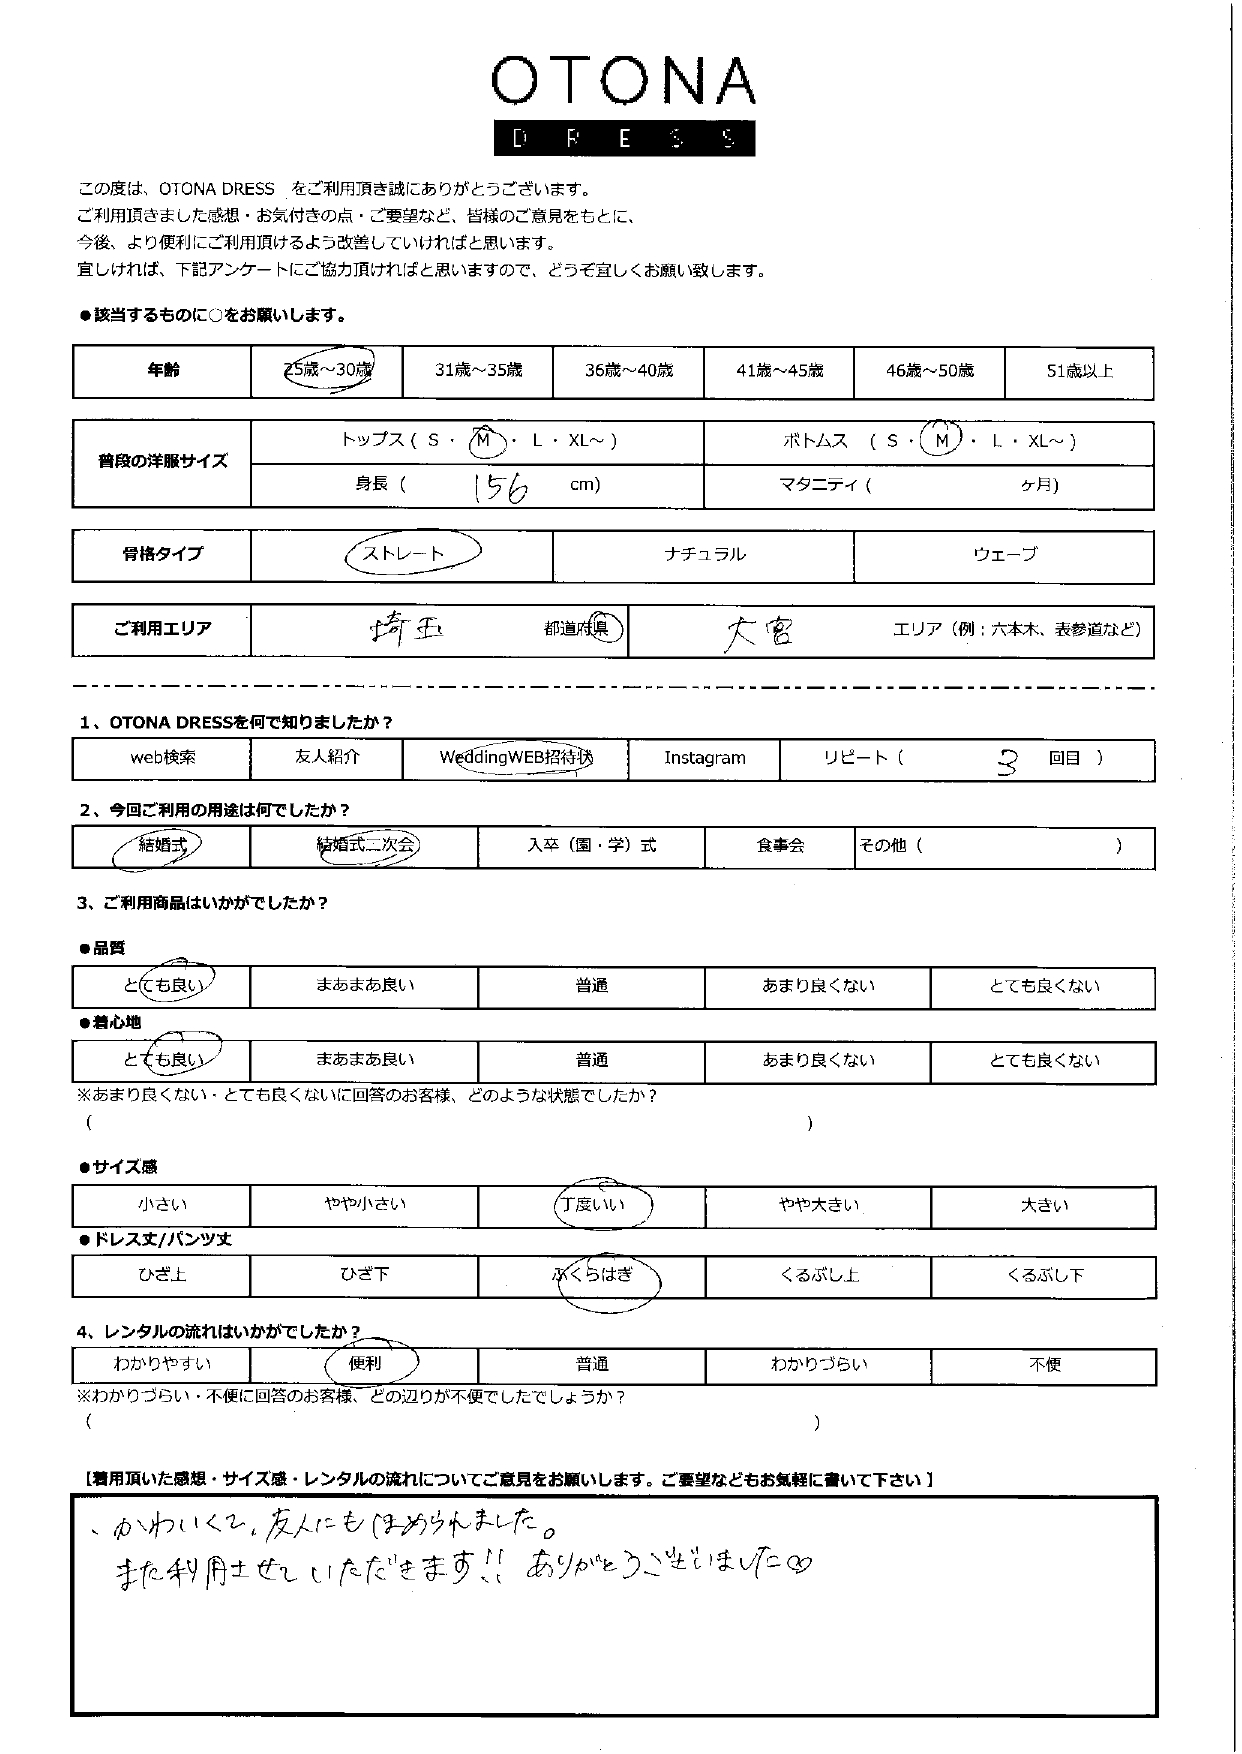 OTONA
DRESS
この度は、OTONA DRESS をご利用頂き誠にありがとうございます。
ご利用頂きました感想・お気付きの点・ご要望など、皆様のご意見をもとに、
今後、より便利にご利用頂けるよう改善していければと思います。
宜しければ、下記アンケートにご協力頂ければと思いますので、どうぞ宜しくお願い致します。
●該当するものに○をお願いします。
年齢 25歳～30歳 31歳～35歳 36歳～40歳 41歳～45歳 46歳～50歳 51歳以上
普段の洋服サイズ トップス ( S ・ M ・ L ・ XL～ ) ボトムス ( S ・ M ・ L ・ XL～ )
身長 ( 156 cm) マタニティ ( ヶ月)
骨格タイプ ストレート ナチュラル ウェーブ
ご利用エリア 埼玉 都道府県 大宮 エリア（例：六本木、表参道など）
1、OTONA DRESSを何で知りましたか？
web検索 友人紹介 WeddingWEB招待状 Instagram リピート ( 3 回目 )
2、今回ご利用の用途は何でしたか？
結婚式 結婚式二次会 入卒（園・学）式 食事会 その他 ( )
3、ご利用商品はいかがでしたか？
●品質
とても良い まあまあ良い 普通 あまり良くない とても良くない
●着心地
とても良い まあまあ良い 普通 あまり良くない とても良くない
※あまり良くない・とても良くないに回答のお客様、どのような状態でしたか？
( )
●サイズ感
小さい やや小さい 丁度いい やや大きい 大きい
●ドレス丈/パンツ丈
ひざ上 ひざ下 ふくらはぎ くるぶし上 くるぶし下
4、レンタルの流れはいかがでしたか？
わかりやすい 便利 普通 わかりづらい 不便
※わかりづらい・不便に回答のお客様、どの辺りが不便でしたでしょうか？
( )
【着用頂いた感想・サイズ感・レンタルの流れについてご意見をお願いします。ご要望などもお気軽に書いて下さい】
、かわいくて、友人にもほめられました。
また利用させていただきます!! ありがとうございました♡